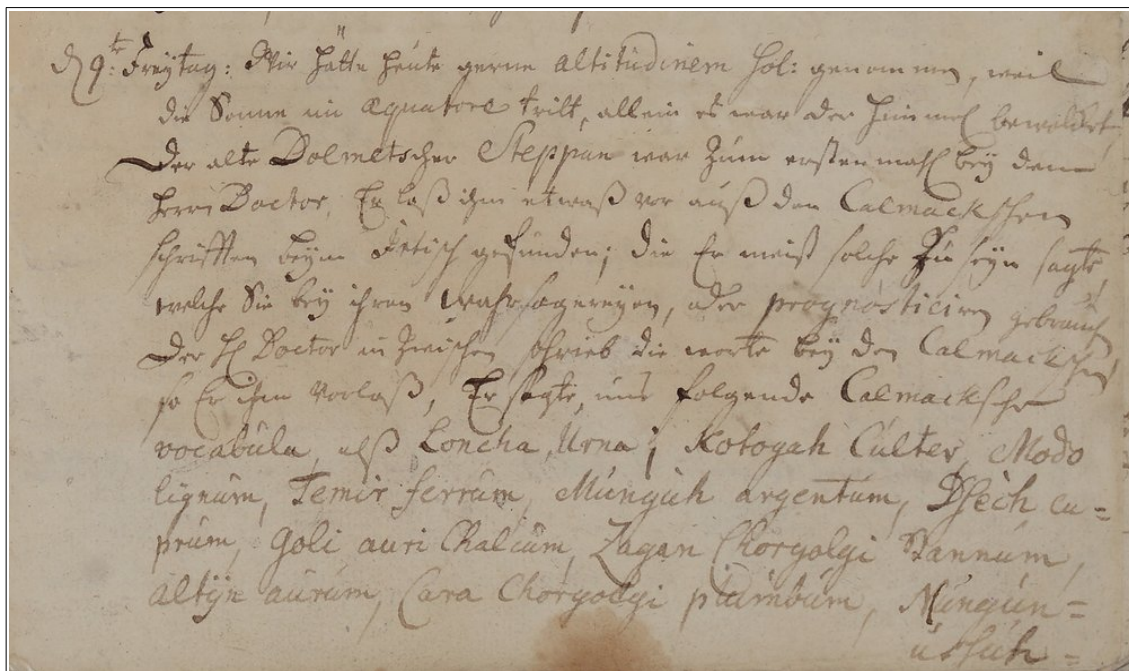 D 9te. Freytag: Wir hätte heute gerne altitudinem Sol: genommen, weil
die Sonne im æquatore tritt, allein es war der Himmel bewölcket,
Der alte Dolmetscher Steppan war zum erstenmahl bey dem
Herrn Doctor, Er laß ihm etwaß vor auß den Calmackschen
schrifften beym Fetisch gefunden; die Er meist solche zu seyn sagte,
welche Sie bey ihren wahrsagereyen, oder prognosticiren gebrauch
Der H Doctor in zwischen schrieb die worte bey den Calmackschen,
so Er ihm vorlaß, Er sagte, uns folgende Calmacksche
vocabula, alß Loncha, Urna; Kotogah Culter, Modo
lignum, Temir ferrum, Mungùh argentum, Dsech cu=
prum, Goli auri Chalcum, Zagan Chorgolgi Stannum,
altijn aurum, Cara Chorgolgi plumbum, Mungun=